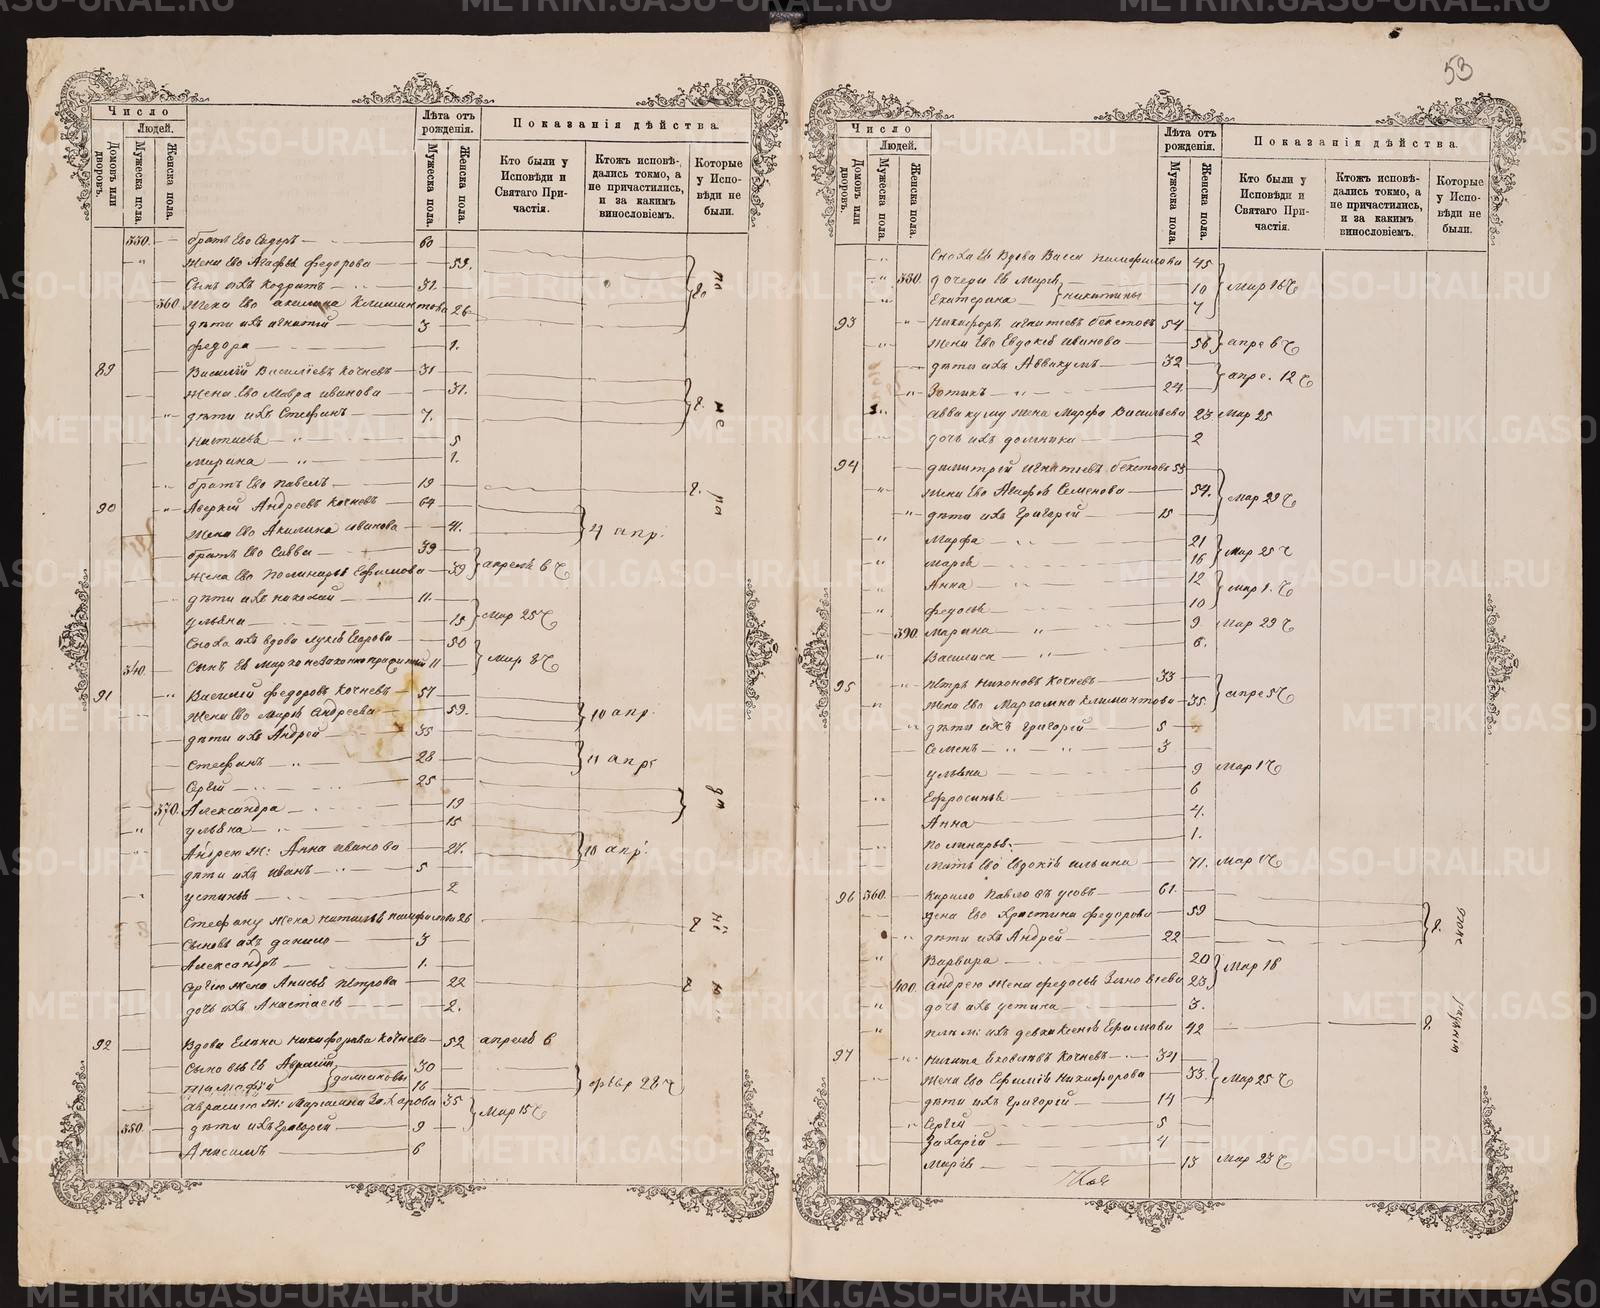 53
Число
Людей.
Домовъ или дворовъ.
Мужеска пола.
Женска пола.
Лѣта отъ рожденія.
Мужеска пола.
Женска пола.
Показанія дѣйства
Кто были у Исповѣди и Святаго Причастія.
Ктожъ исповѣдались токмо, а не причастились, и за какимъ винословіемъ.
Которые у Исповѣди не были.
братъ Его Сидоръ 60
Жена Его Агафья федорова 59.
Сынъ ихъ Кодратъ 31.
360. Жена Его акилина Климантова 26
дѣти ихъ игнатій 3
федора 1.
89 Василій Васильевъ Кочневъ 31
Жена Его Мавра иванова 31.
дѣти ихъ Стефанъ 7.
5
Марина 1.
братъ Его Павелъ 19
90 Аверкій Андреевъ Кочневъ 64
Жена Его Акилина иванова 41. 4 апр.
братъ Его Савва 39
Жена Его Полинарья Ефимова 39 апреля 6
дѣти ихъ николай 11.
ульяна 15 Мар 25
Сноха ихъ вдова лукія Егорова 50
340. Сынъ Ея Марко 11 Мар 8
91 Василій федоровъ Кочневъ 57
Жена Его Марія Андреева 59. 10 апр.
дѣти ихъ Андрей 35
Стефанъ 28 11 апр
Сергій 25
370. Александра 19
ульяна 15
Андрею ж: Анна иванова 24. 10 апр.
дѣти ихъ иванъ 5
устинья 2
Стефану жена наталья памфилова 26
Сыновья ихъ данило 3
Александръ 1.
Сергію жена Анисья Петрова 22
дочь ихъ Анастасія 2.
92 Вдова Елена никифорова Кочнева 52 апреля 6
Сыновья Ея Аврамій 30
Тимофій 16 февр 28
Аврамію ж: Мариамна Захарова 35 Мар 15
350. дѣти ихъ Григорій 9
Анисимъ 6
Число
Людей.
Домовъ или дворовъ.
Мужеска пола.
Женска пола.
Лѣта отъ рожденія.
Мужеска пола.
Женска пола.
Показанія дѣйства.
Кто были у Исповѣди и Святаго Причастія.
Ктожъ исповѣдались токмо, а не причастились, и за какимъ винословіемъ.
Которые у Исповѣди не были.
Сноха Ея Вдова Васса памфилова 45
380. дочери Ея Марія 10 Мар 16
Екатерина никитины 7
93 Никифоръ игнатіевъ бекетовъ 54
Жена Его Евдокія иванова 56 апре 6
дѣти ихъ Аввакумъ 32 апре. 12
Зотикъ 24
Аввакуму жена Марфа Васильева 23 Мар 25
дочь ихъ домника 2
94 димитрій игнатіевъ бекетовъ 53
Жена Его Агафья Семенова 54. Мар 29
дѣти ихъ Григорій 15
Марфа 21
Марія 16 Мар 25
Анна 12 Мар 1.
федосья 10
390. Марина 9 Мар 29
Василиса 6.
95 Петръ никоновъ Кочневъ 33
Жена Его Мариамна Климантова 35 апре 5
дѣти ихъ Григорій 5
Семенъ 3
ульяна 9 Мар 1
Ефросинья 6
Анна 4.
Полинарья 1.
мать Его Евдокія ильина 71. Мар 1
96 360. Кирило Павловъ усовъ 61.
жена Его Христина федорова 59
дѣти ихъ Андрей 22
Варвара 20 Мар 18
400. Андрею жена федосья 23
дочь ихъ устина 3.
плем: ихъ девка Ксенія Ефимова 42
97 Никита Яковлевъ Кочневъ 34
Жена Его Ефимія Никифорова 33. Мар 25
дѣти ихъ Григорій 14
Сергій 5
Захарій 4
Марія 13 Мар 23
METRIKI.GASO-URAL.RU